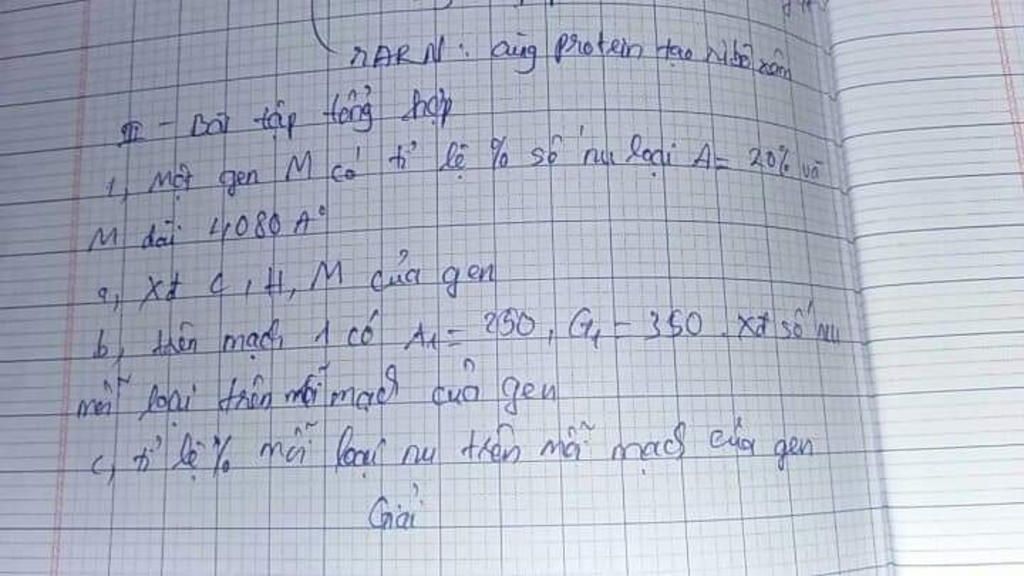 rARN : cùng protein tạo Ribôxôm
III - Bài tập tổng hợp
1, Một gen M có tỉ lệ % số nu loại A = 20% và
M dài 4080 A°
a, Xđ C, H, M của gen
b, trên mạch 1 có A₁ = 250, G₁ = 350. Xđ số nu
mỗi loại trên mỗi mạch của gen
c, tỉ lệ % mỗi loại nu trên mỗi mạch của gen
Giải